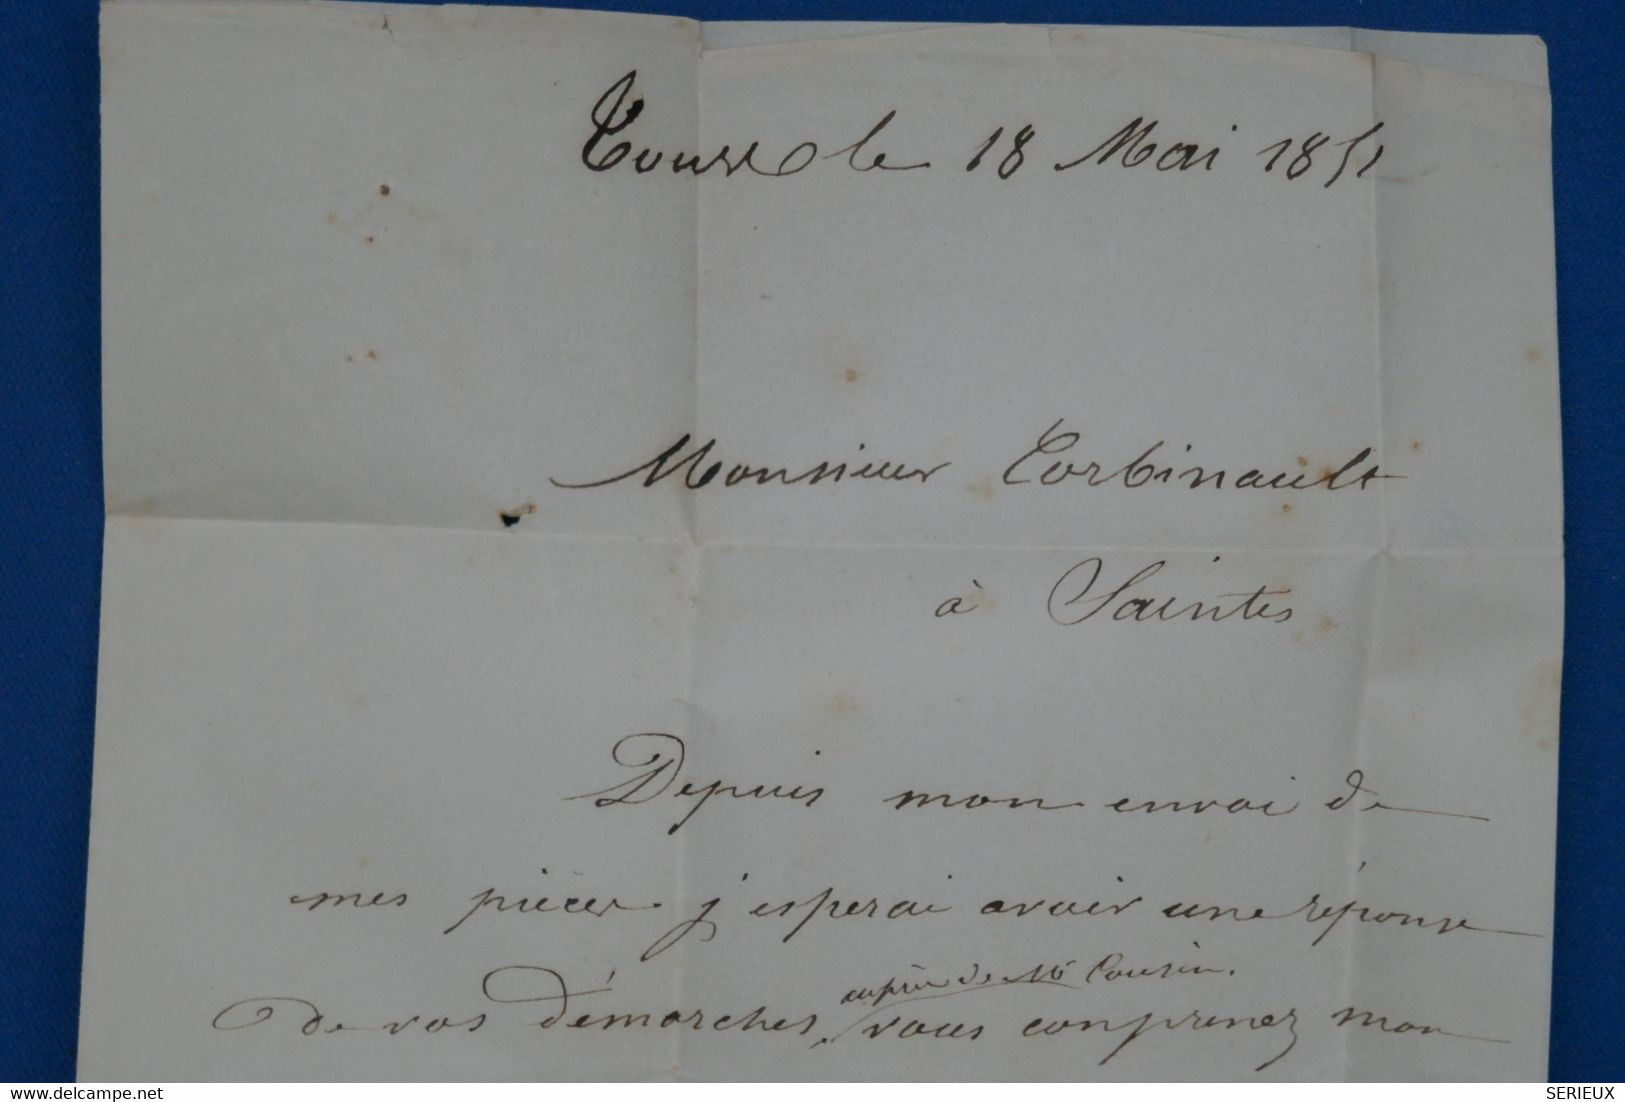 Tours le 18 Mai 1851
Monsieur Corbinault
à Saintes
Depuis mon envoi de
mes pièces j'esperai avoir une réponse
auprès de Mr Cousin.
de vos démarches, vous conprenez mon
© delcampe.net
SERIEUX